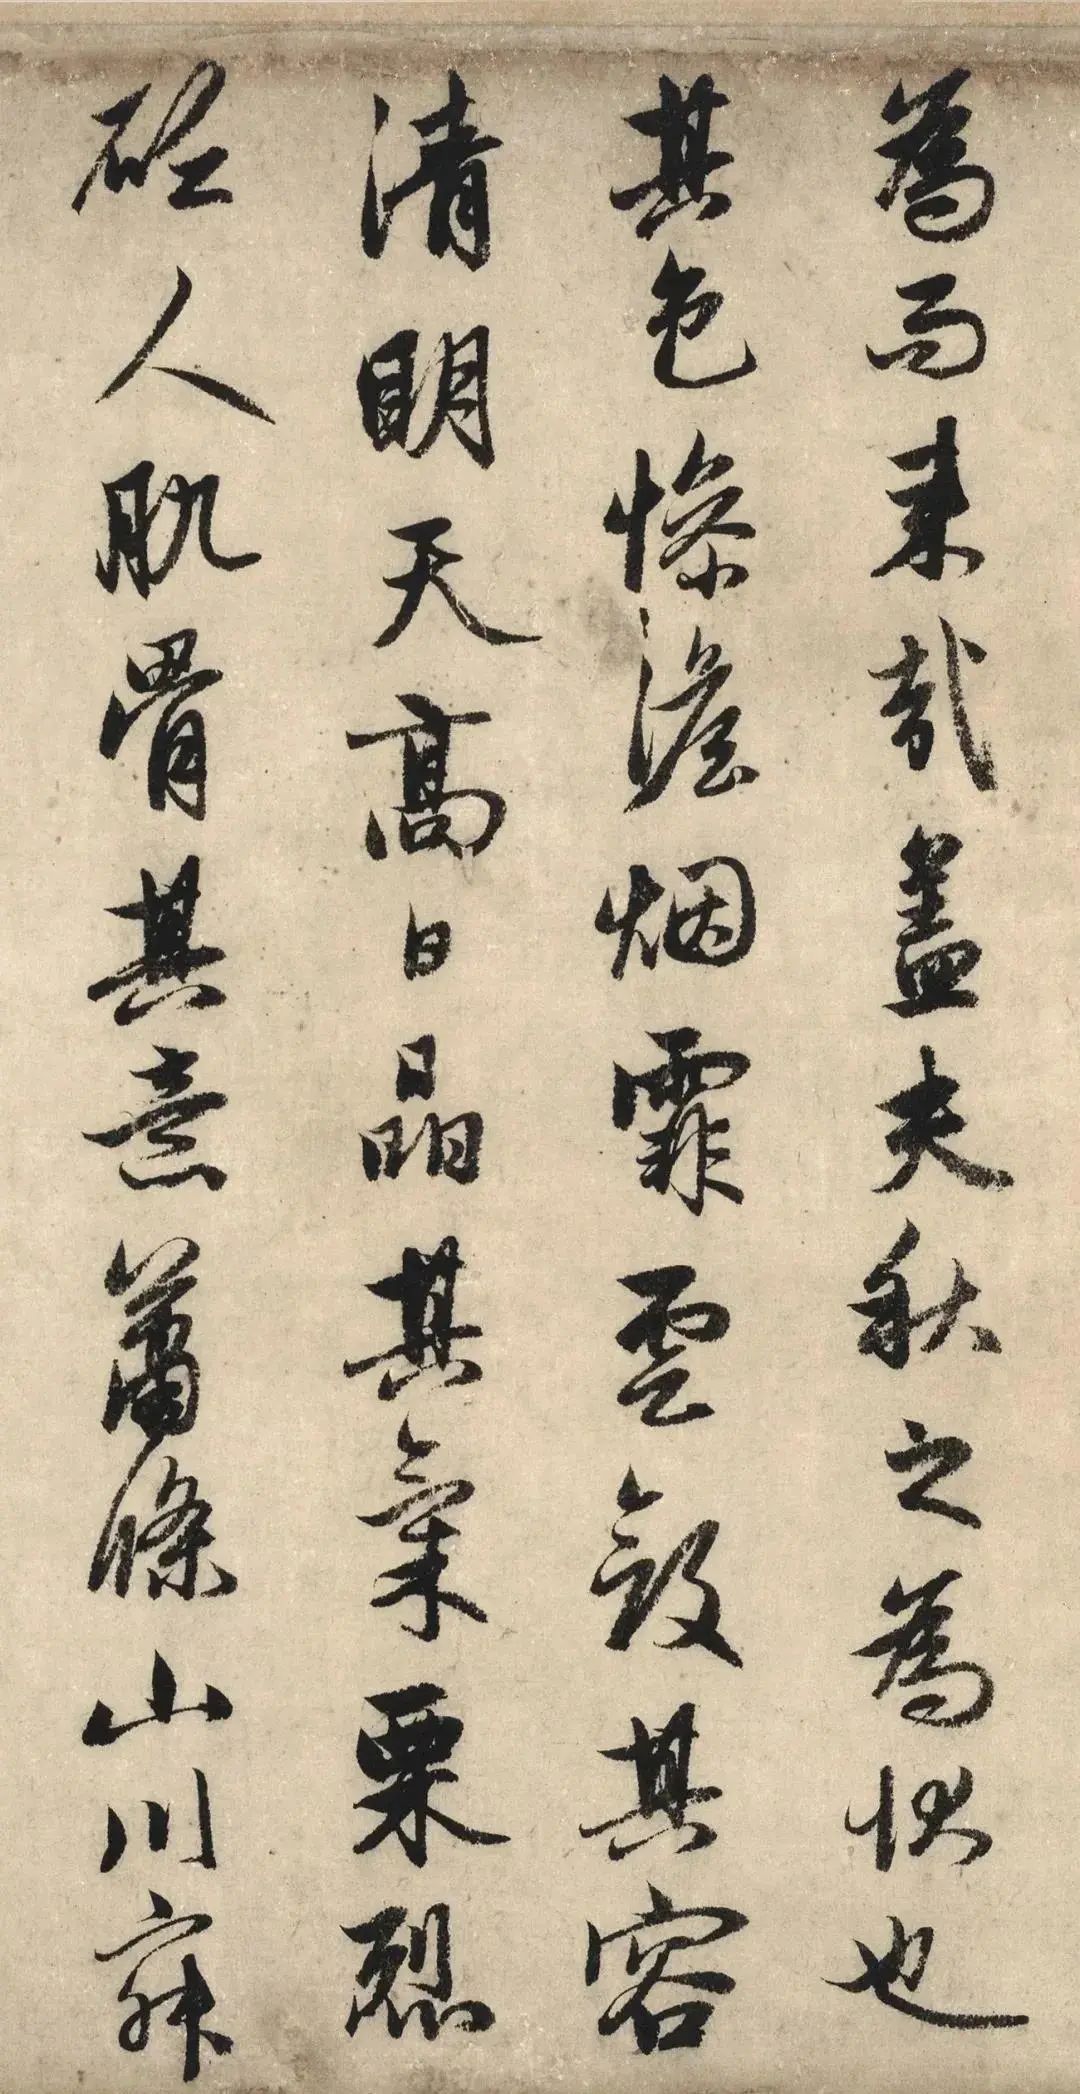 為而来哉盖夫秋之為状也
其色慘澹烟霏雲斂其容
清明天高日晶其氣栗烈
砭人肌骨其意蕭條山川寂